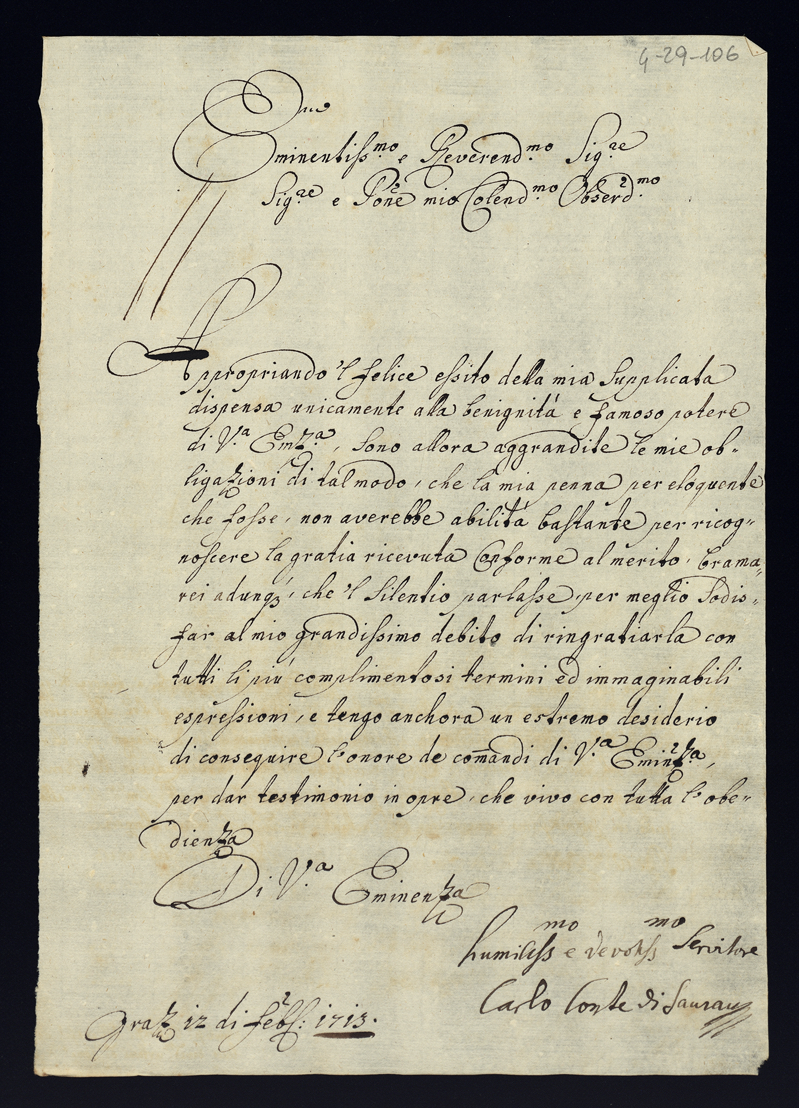 4-29-106
Emo
Eminentiss.mo e Reverend.mo Sig.re
Sig.re e Pōne mio Colend.mo Obserd.mo
Appropriando 'l felice essito della mia supplicata
dispensa unicamente alla benignità e famoso potere
di V.a Emz.a, sono allora aggrandite le mie ob-
ligazioni di tal modo, che la mia penna per eloquente
che fosse, non averebbe abilità bastante per ricog-
noscere la gratia ricevuta conforme al merito, brama-
rei adunq3, che 'l silentio parlasse, per meglio sodis-
far al mio grandissimo debito di ringratiarla con
tutti li più complimentosi termini ed immaginabili
espressioni, e tengo anchora un estremo desiderio
di conseguire l'onore de com̄andi di V.a Eminz.a,
per dar testimonio in opre, che vivo con tutta l'obe-
dienza
Di V.a Eminenza
humiliss mo e devotiss mo Servitore
Carlo Conte di Saurau
Graz 12 di Feb: 1713.